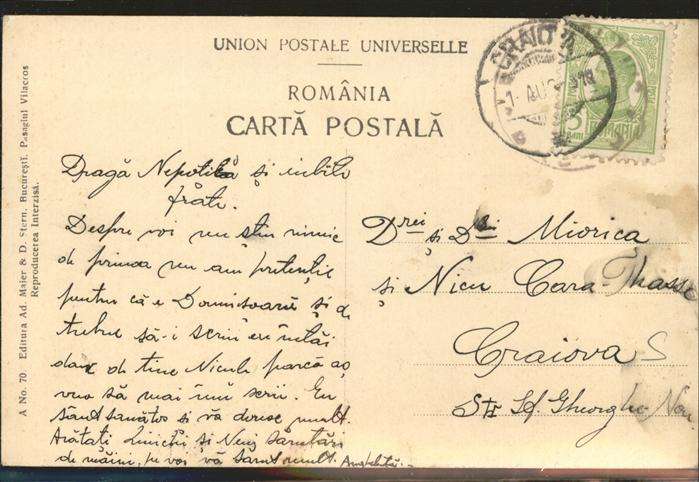 UNION POSTALE UNIVERSELLE
ROMÂNIA
CARTĂ POSTALĂ
CRAIOVA
1 AUG
5
BANI
ROMANIA
A No. 70 Editura Ad. Maier & D. Stern, Bucureşti. Pasagiul Vilacros
Reproducerea Interzisă.
Dragă Nepotică şi iubite
frate.
Despre voi nu ştiu nimic
de prima nu am pretenţie
pentru că e Domnisoară şi de
trebue să-i scriu eu întâi
dar de tine Nicule parcă aş
vrea să mai îmi scrii. Eu
sânt sanatos şi vă doresc mult.
Arătati şi sărutări
de mâini, pe voi vă sărut mult.
Drei şi Dlui Miorica
şi Nicu Cara-Thassе
Craiova
Str Sf. Gheorghe Nou